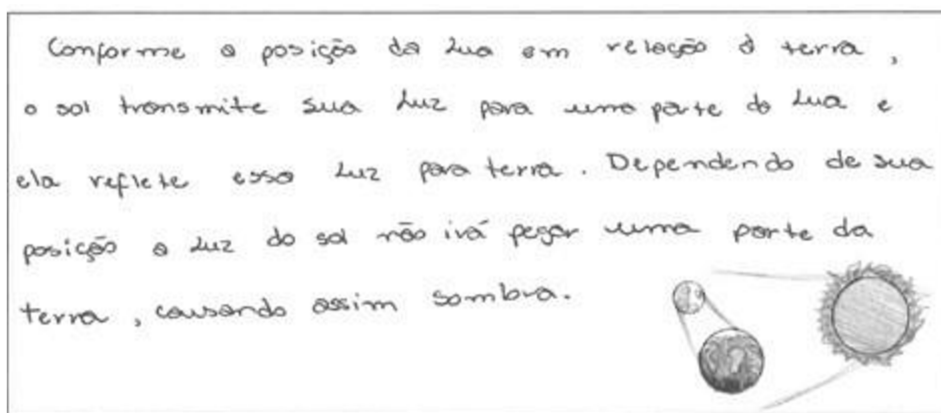 Conforme a posição da Lua em relação à terra,
o sol transmite sua Luz para uma parte da Lua e
ela reflete essa Luz para terra. Dependendo de sua
posição a Luz do sol não irá pegar uma parte da
terra, causando assim sombra.